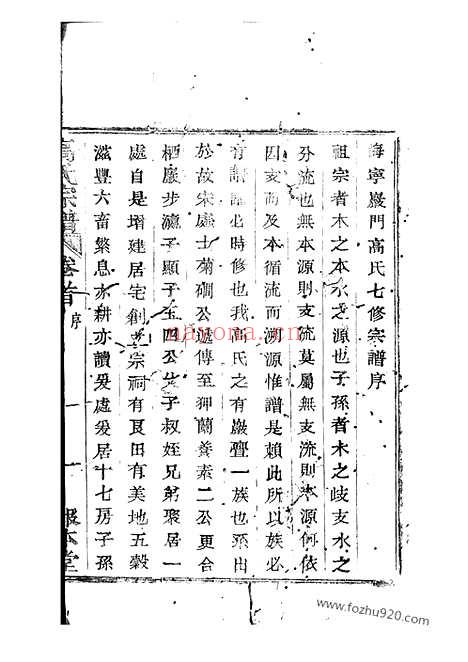 海寧巖門高氏七修宗譜序
祖宗者木之本水之源也子孫者木之歧支水之
分流也無本源則支流莫屬無支流則本源何依
因支而及本循流而溯源惟譜是賴此所以族必
有譜譜必時修也我高氏之有巖亹一族也系出
於故宋處士菊磵公遞傳至狎蘭養素二公更合
栖巖步瀛子顯子玉四公父子叔姪兄弟聚居一
處自是增建居宅創老宗祠有良田有美地五穀
滋豐六畜繁息亦耕亦讀爰處爰居十七房子孫
高氏宗譜
卷首
序
一
報本堂
nayona.cn
www.fozhu920.com